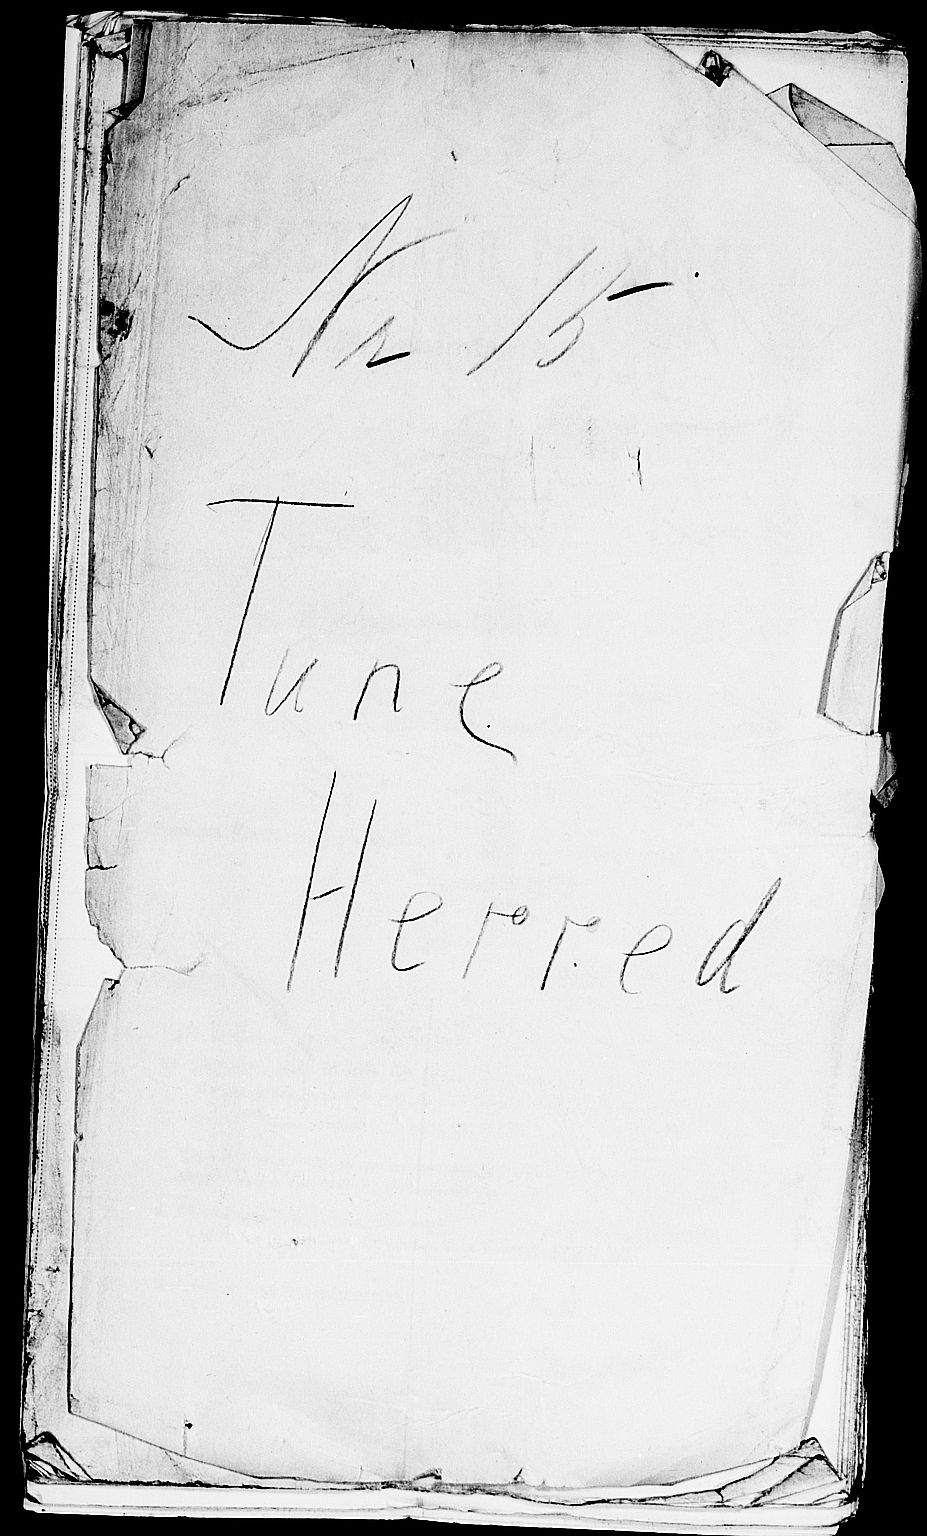 Nr 15
Tune
Herred